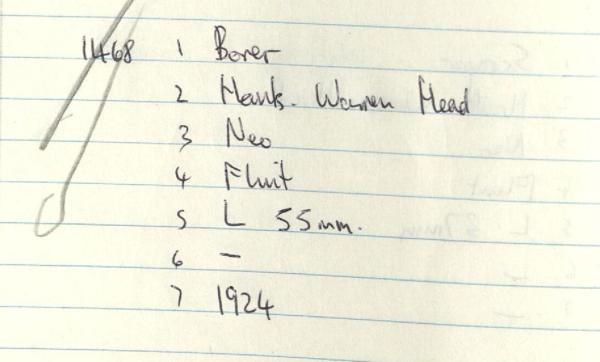 1468 1 Borer
2 Hants. Warren Head
3 Neo
4 Flint
5 L 55mm.
6 –
7 1924